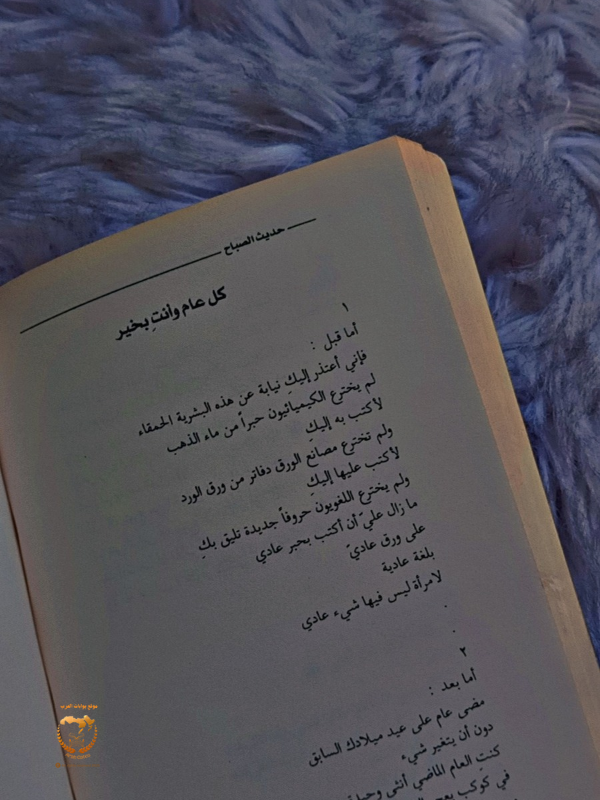 حديث الصباح
كل عام وانتِ بخير
١
أما قبل :
فإني أعتذر إليكِ نيابة عن هذه البشرية الحمقاء
لم يخترع الكيميائيون حبراً من ماء الذهب
لأكتب به إليكِ
ولم تخترع مصانع الورق دفاتر من ورق الورد
لأكتب عليها إليكِ
ولم يخترع اللغويون حروفاً جديدة تليق بكِ
ما زال عليّ أن أكتب بحبر عادي
على ورق عاديّ
بلغة عادية
لامرأة ليس فيها شيء عادي
.
.
٢
أما بعد :
مضى عام على عيد ميلادك السابق
دون أن يتغير شيء
كنتِ العام الماضي أنثى وحيدة
في كوكب يعج
موقع بوابات العرب